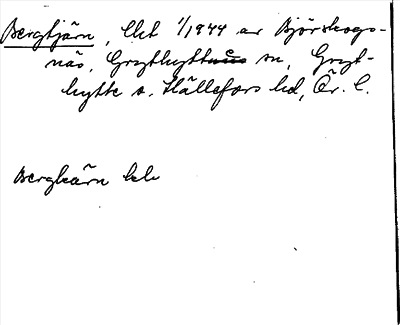 Bergtjärn, lht 1/1944 av Björskogs-
näs, Grythytte sn, Gryt-
hytte o. Hällefors hd, Ör. l.
Bergkärn